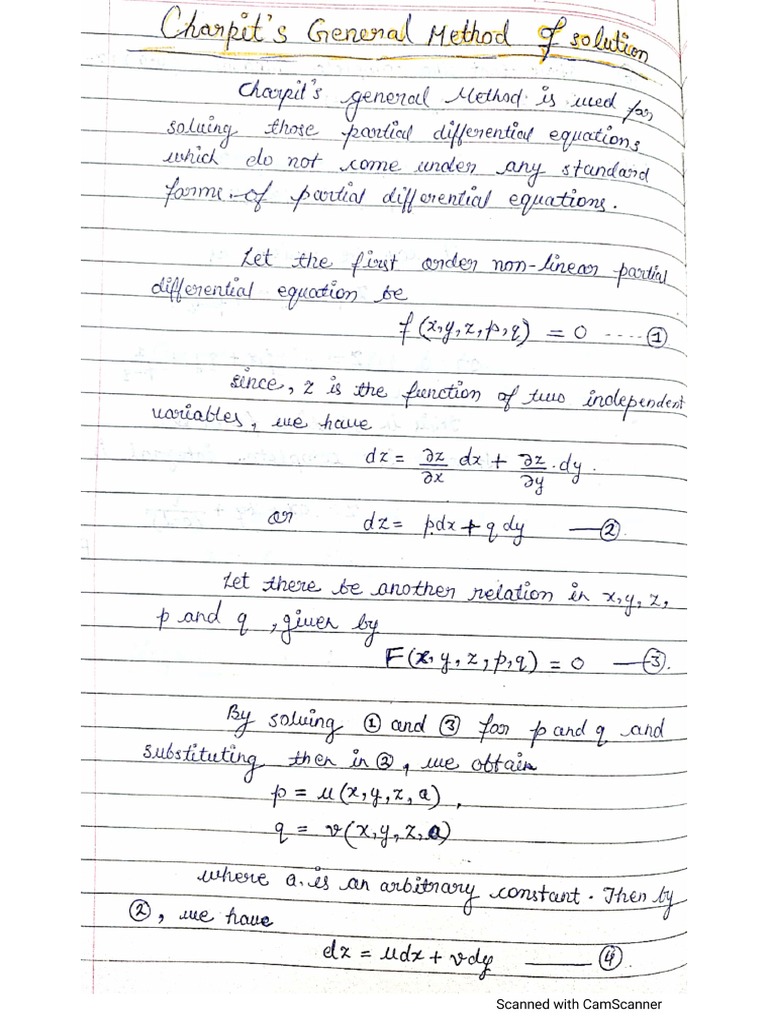 Charpit's General Method of solution
Charpit's general Method is used for
solving those partial differential equations
which do not come under any standard
forms of partial differential equations.
Let the first order non-linear partial
differential equation be
f(x,y,z,p,q) = 0 ---- ①
since, z is the function of two independent
variables, we have
dz = ∂z/∂x dx + ∂z/∂y . dy .
or dz = pdx + q dy — ②
Let there be another relation in x, y, z,
p and q, given by
F(x, y, z, p, q) = 0 — ③.
By solving ① and ③ for p and q and
substituting then in ②, we obtain
p = u(x, y, z, a) ,
q = v(x, y, z, a)
where a. is an arbitrary constant. Then by
②, we have
dz = udx + vdy — ④
Scanned with CamScanner